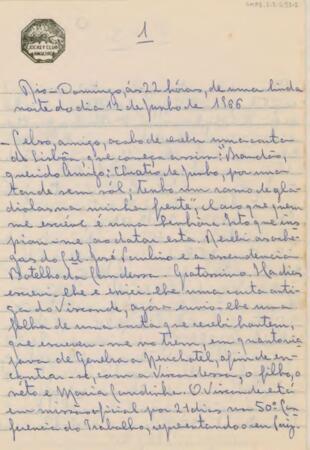 JOCKEY CLUB
1
Rio-Domingo, ás 22 hóras, de uma linda
noite do dia 12 de Junho de 1966
- Celso, amigo, acabo de receber uma carta
de Lisbôa, que começa assim: "Brandão,
querido Amigo: Quatro de Junho, por uma
tarde sem sól; tenho um ramo de gla-
diolas na minha frente". Claro que quem
me escreve é uma Senhora. Isto que ins-
pirou-me ao datar esta. Recebi as
do Cél. José Paulino e a ascendencia
Botelho da Condessa. Gratissimo. Ha dias
escrevi-lhe e enviei-lhe uma carta anti-
ga do Visconde, agóra envio-lhe uma
folha de uma carta que recebi hontem,
que escreveu-me no trem, em
de Genebra a Neuchatel, afim de en-
contrar-se, com a Viscondessa, o filho, o
néto e Maria Candinha. O Visconde está
em missão oficial por 21 dias na 50ª Con-
ferencia do Trabalho, representando o seu